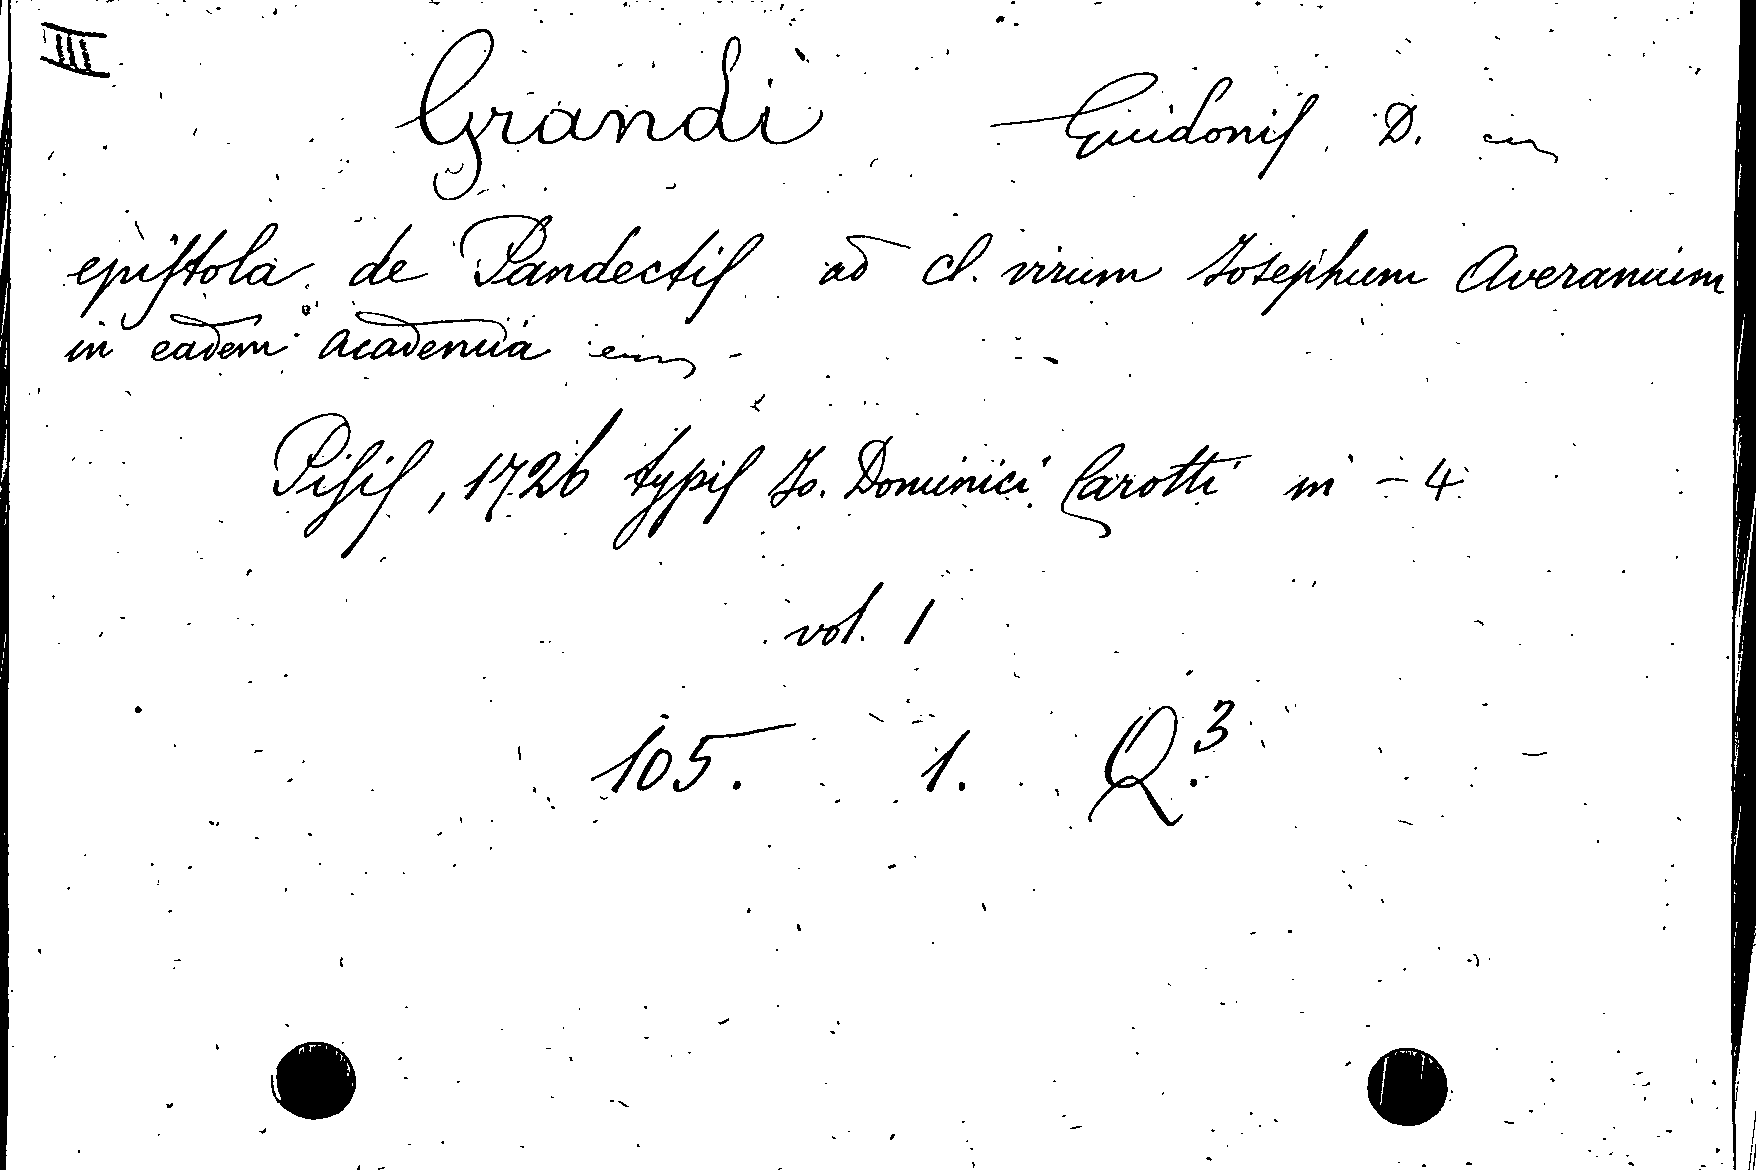 III
Grandi — Guidonis D.
epistola de Pandectis ad cl. virum Josephum Averanium
in eadem academia
Pisis, 1726 typis Jo. Dominici Carotti in - 4
vol. 1
105. 1. Q.3